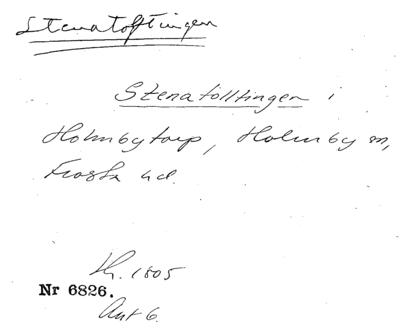 Stenatofttingen
Stenatolltingen i
Holmbytorp, Holmby sn,
Frosta hd.
Sk. 1805
Nr 6826.
Akt 6.